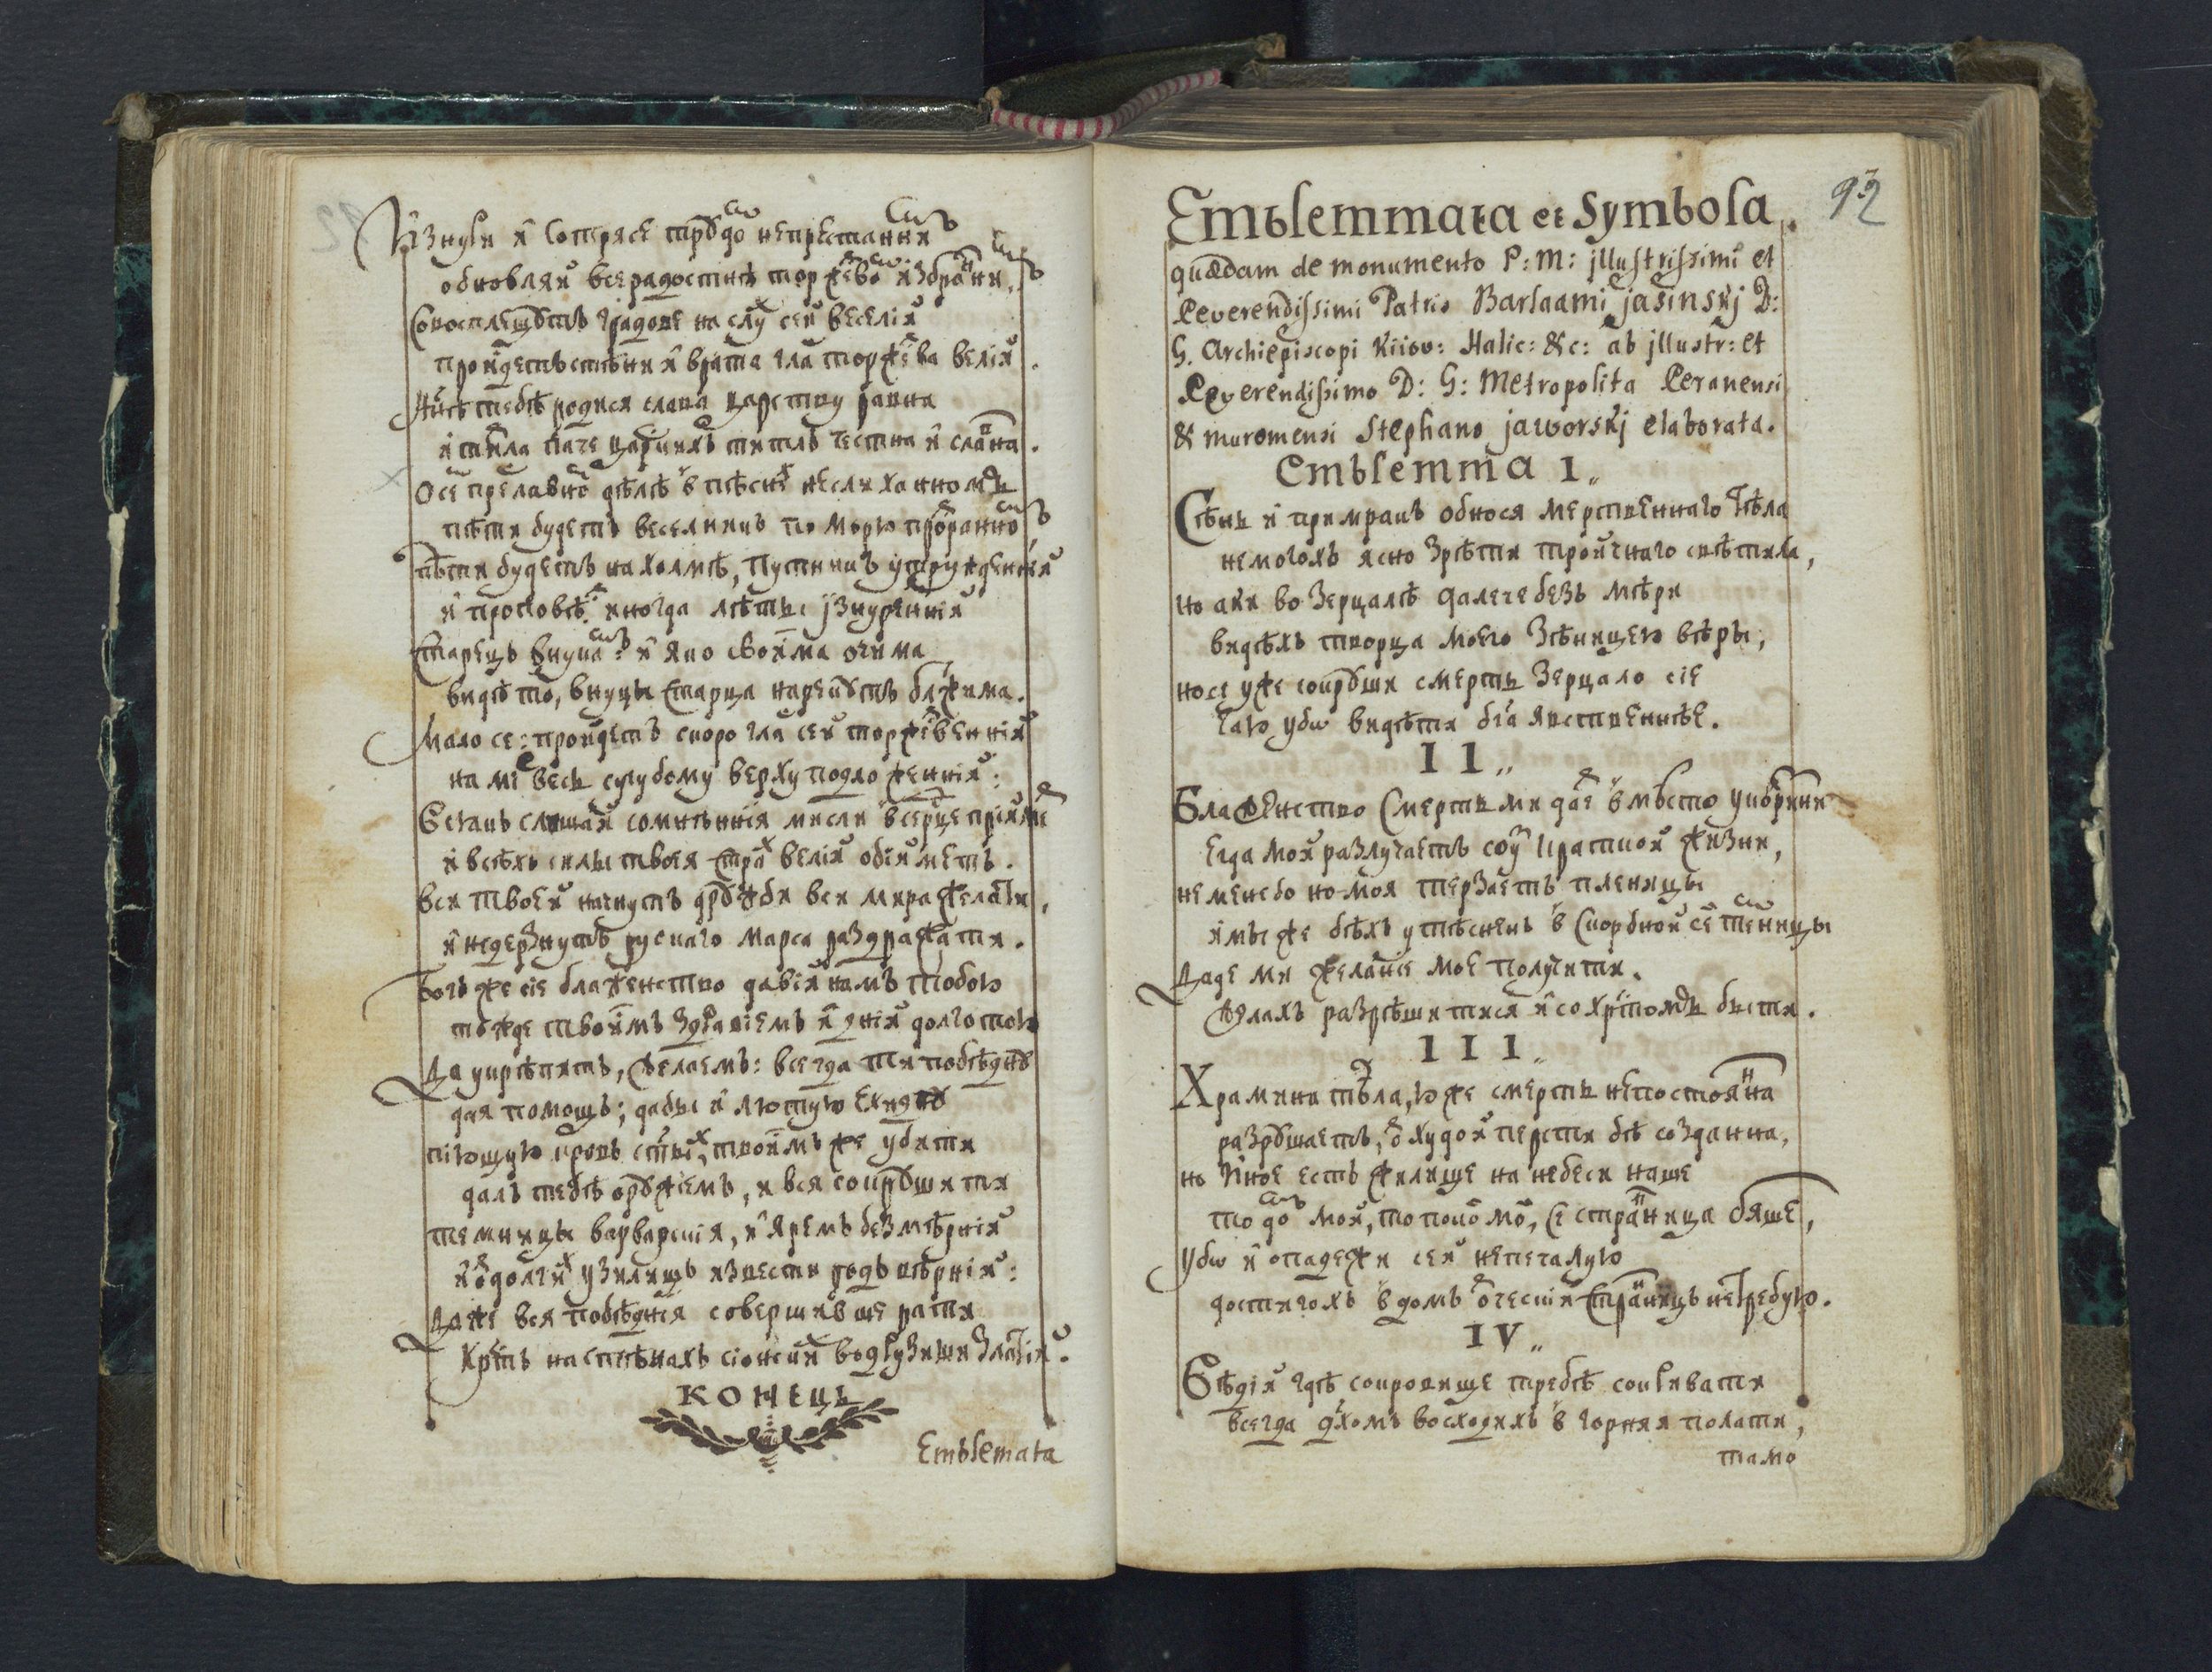 обновляй всерадостнѣ торжєво избранн
Совосплещутъ градове на слу сєй вєсєлій
пройдетъ стѣни и врата гла торжєва велій.
Нн̃ѣ тебѣ родися слава царству равна
и титла паче царскихъ титлъ честна и славна.
О сє прєлавно дѣлѣ в пѣснє нєслиханномъ
пѣти будетъ веселникъ по морю пространно
пѣти будетъ на холмѣ, Путникъ утружденній
и прословѣ иногда лѣты изнуренній
Старецъ внука и яко своима очима
видѣ то, внуцы Старца нарекутъ блажима.
Мало се: пройдетъ скоро гла сей торжєвенній
на мє весь сугубому верху подложенній:
Встанъ слышай сомнѣнія мисли в сєрцє прійме
и всѣхъ силы твоєя стра велій обійметъ.
Вси твоєй начнутъ дружби вси мира желати,
и недерзнутъ рускаго Марса раздражати.
Богъ же сіє блаженство давій намъ тобою
тожде твоимъ здравіемъ и дній долготою
Да укрѣпитъ, желаемъ: всегда ти побѣдну
дая помощь; дабы и лютую Ехидну
піющую кровь ст̃ыхъ, твоимъ же убити
далъ тебѣ оружіемъ, и вся сокрушити
темницы варварскія, и яремъ безмѣрній
и долгихъ узилищъ извести родъ вѣрній:
Даже вся побѣднія совершивше рати
Кр̃тъ на стѣнахъ сіонскихъ водрузиши златій.
КОНЕЦЪ
Emblemata
92
Emblemmata et Symbola.
quædam de monumento P: M: jllustrissimi et
Reverendissimi Patris Barlaami jasinskj D:
G. Archiepiscopi Kiiov: Halic: &c: ab jllustr: et
Reverendissimo D: G: Metropolita Rezanensi
& muromensi Stephano jaworskj elaborata.
Emblemma I.
Сѣнь и примракъ обнося мерственнаго тѣла
немогохъ ясно зрѣти тройчнаго свѣтила,
но аки во зерцалѣ далече безъ мѣри
видѣхъ творца моего зѣницею вѣры,
но се уже сокруши смерть зерцало сіе
чаю убѡ видѣти бг̃а явственнѣе.
II.
Блаженство Смерть ми дає в мѣсто укоризни
Егда мой разлучаетъ соу краткой жизни,
не мене бо но моя терзаетъ пленицы
имы же бѣхъ утѣсненъ в скорбной се темницы
Даде ми желаніе мое получити.
желахъ разрѣшитися и со хр̃томъ быти.
III.
Храмина тѣла, юже смерть непостоянна
разрушаетъ, ѿ худой персти бѣ созданна,
но иное есть жилище на небеси наше
то до мой, то покой мо, се странница бяше,
Убѡ и о падежи сей непечалую
достигохъ в домъ ѿческій странницъ нетребую.
IV.
Вѣдій гдѣ сокровище требѣ сокривати
всегда дх̃омъ восходихъ в горняя полати,
тамо